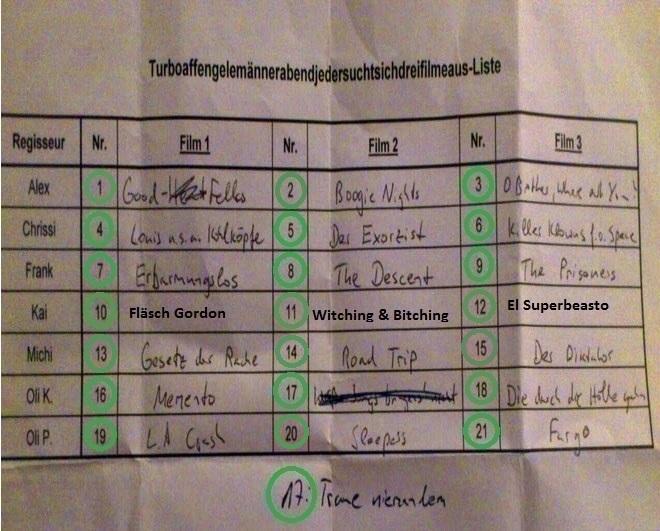 Turboaffengelemännerabendjedersuchtsichdreifilmeaus-Liste
Regisseur Nr. Film 1 Nr. Film 2 Nr. Film 3
Alex 1 Good Fellas 2 Boogie Nights 3 O Brother, where art
Chrissi 4 Louis u.s.a. Kohlköpfe 5 Der Exorzist 6 Killer Klowns f.o. Space
Frank 7 Erbarmungslos 8 The Descent 9 The Prisoners
Kai 10 Fläsch Gordon 11 Witching & Bitching 12 El Superbeasto
Michi 13 Gesetz der Rache 14 Road Trip 15 Der Diktator
Oli K. 16 Memento 17 18 Die durch die Hölle gehen
Oli P. 19 L.A Crash 20 Sleepers 21 Fargo
17: Traue niemandem